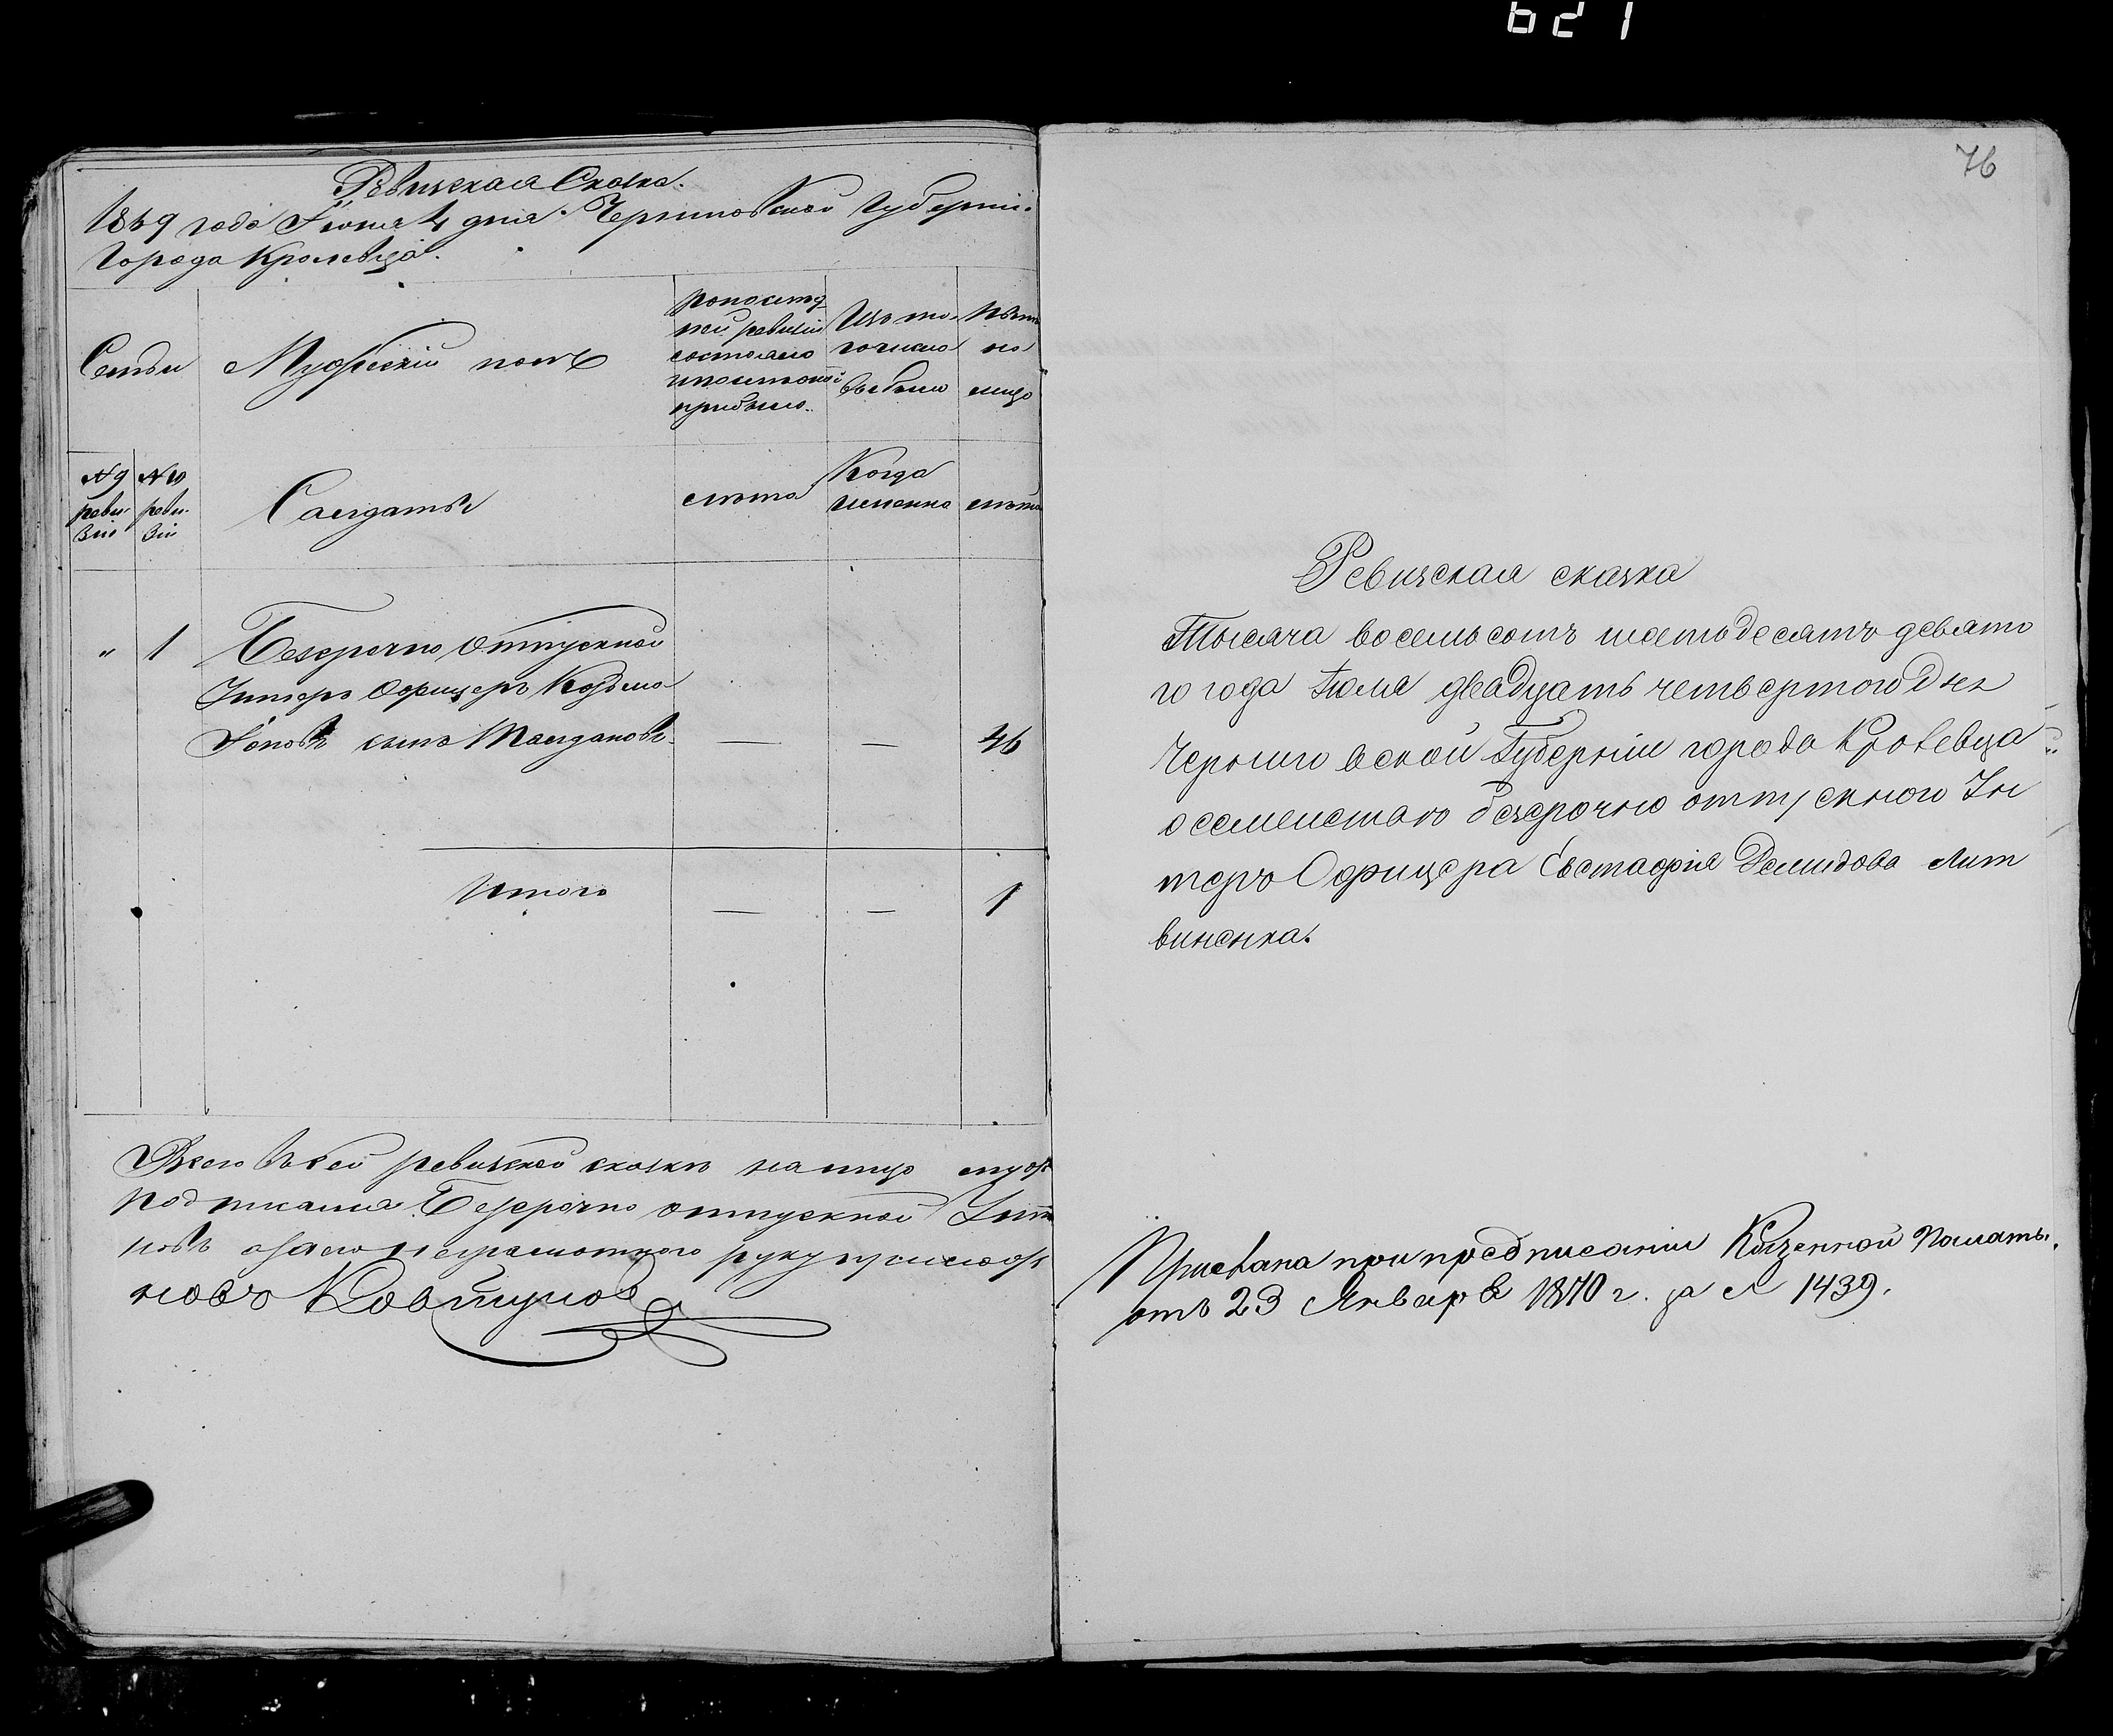 621
Ревизская Сказка.
1869 года Іюня 4 дня Черниговской Губерніи
Города Кролевца.
Семьи
Мужескій полъ
По послед
ней ревизіи
состояло
и после того
прибыло.
Изъ то
го числа
выбыло
Ныне
на
лицо
№ 9
реви
зіи
№ 10
реви
зіи
Салдатъ
лета
Когда
именно
лета
" 1 Безсрочно Отпускной
Унтеръ Офицеръ Козьма
Іоновъ сынъ — — 46
Итого — — 1
Всего въ сей ревизской сказке на лицо муж
Подписалъ Безсрочно отпускной Унт
новъ а за его неграмотного руку приложи
новъ Ковтунов
76
Ревизская сказка
Тысяча восемьсотъ шестьдесятъ девято
го года Іюля двадцать четвертого дня
Черниговской Губерніи города Кролевца
о семействе безсрочно отпускного Ун
теръ Офицера Евстафія Демидова Лит
виненка.
Прислана при предписаніи Казенной Палаты.
отъ 23 Января 1870 г. за № 1439.